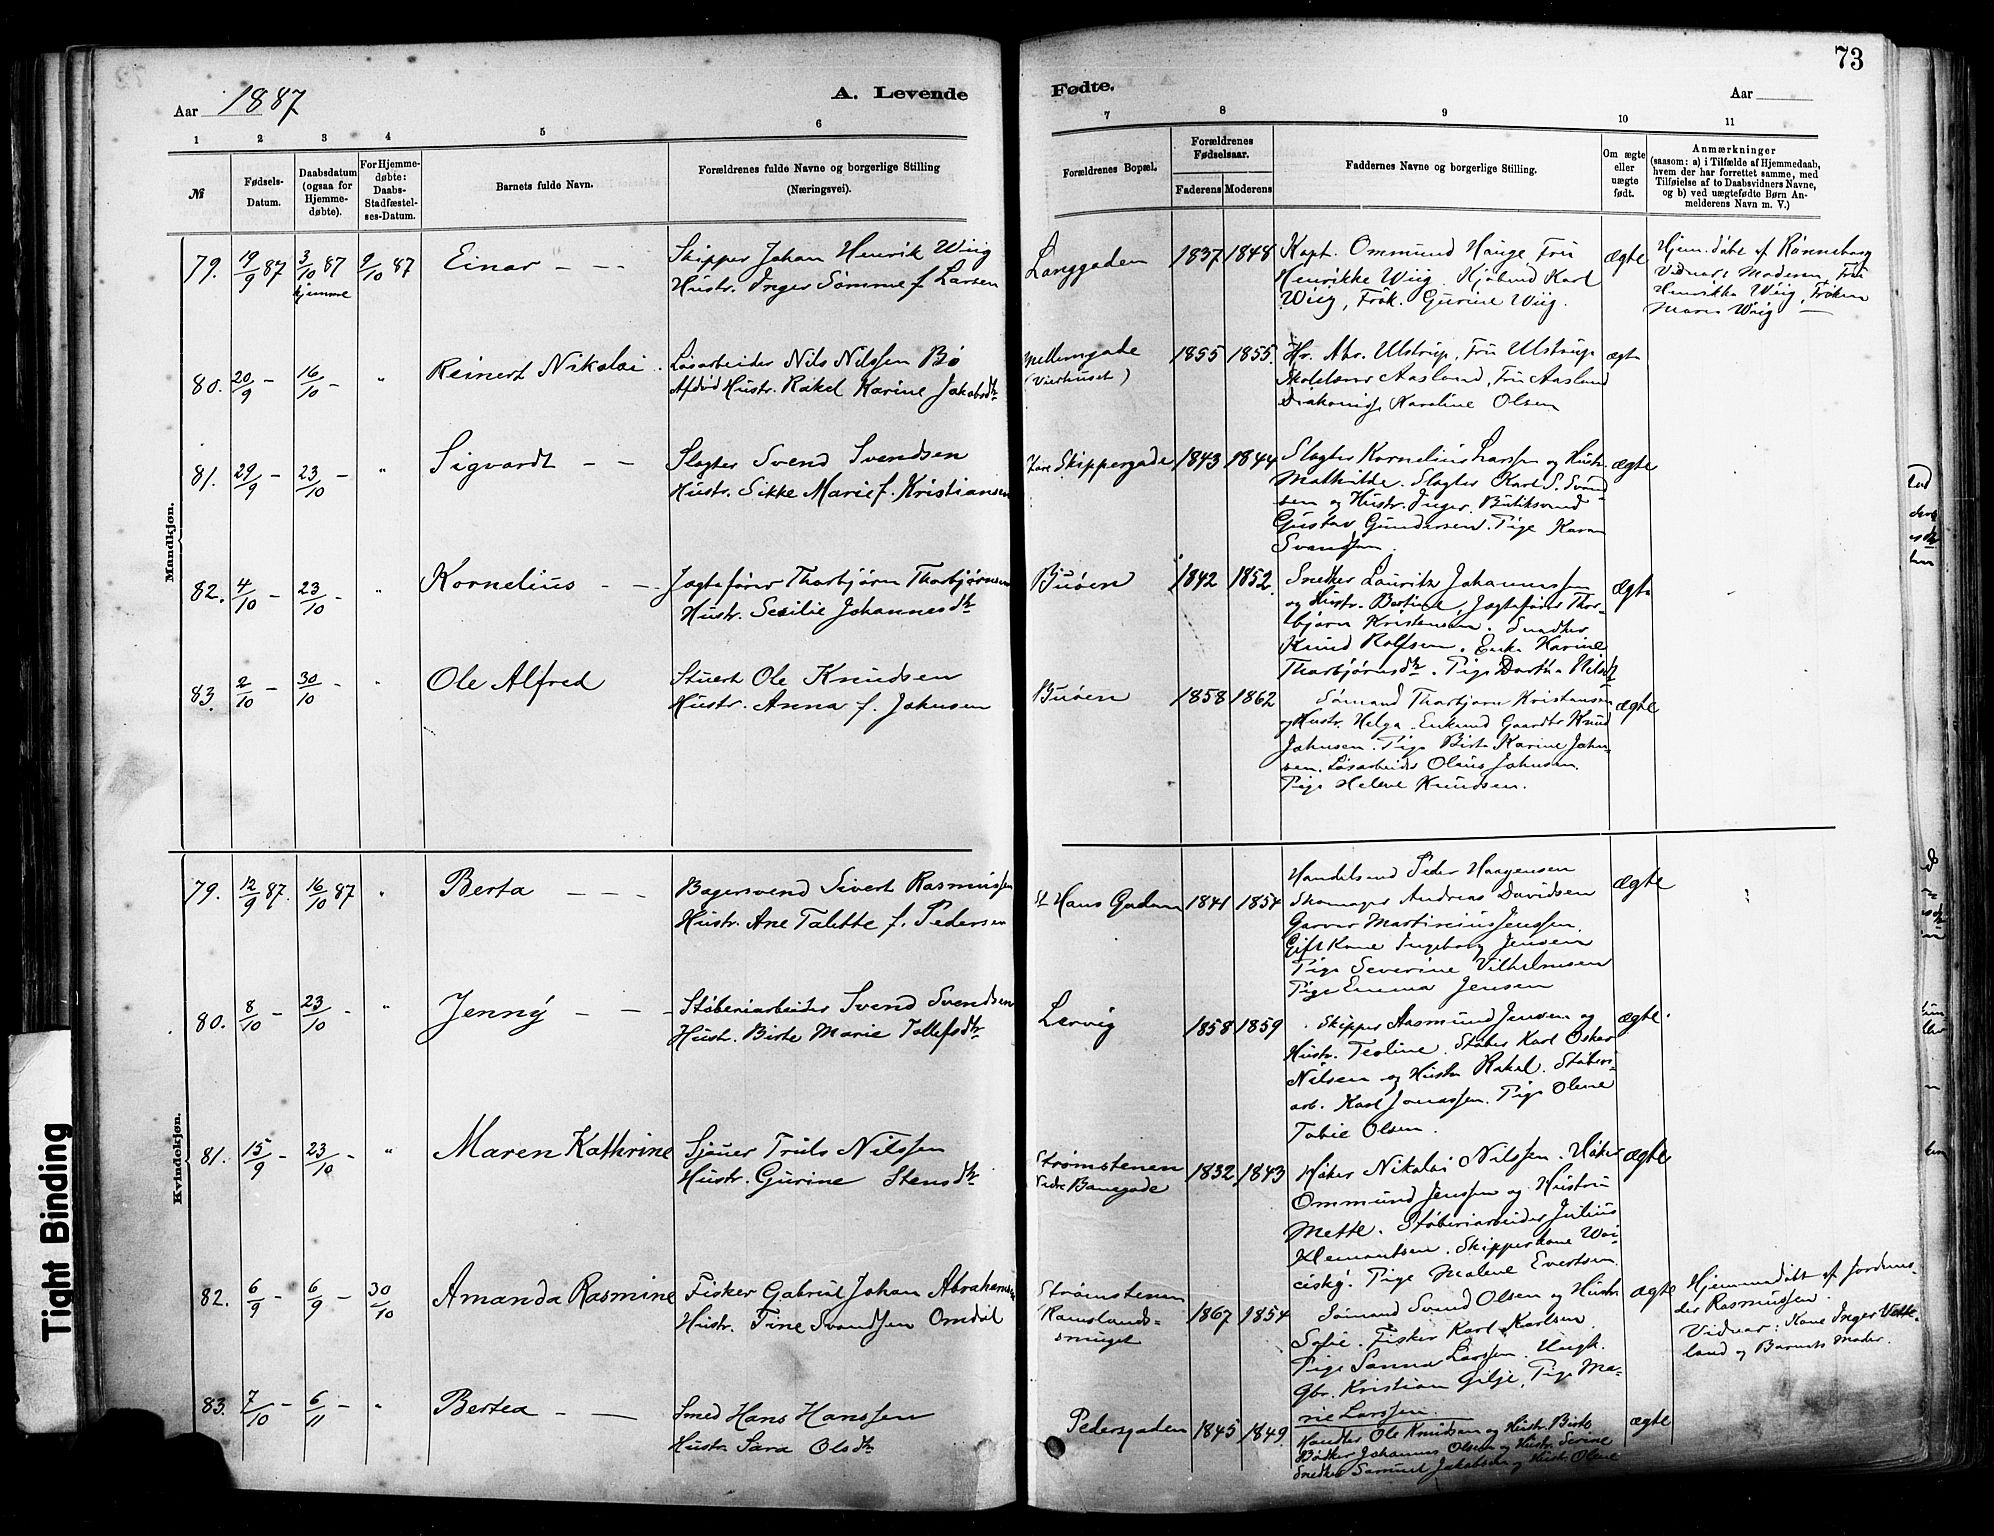 73
Aar 1887
A. Levende
Fødte.
Aar
1 2 3 4 5 6 7 8 9 10 11
№
Fødsels-
Datum.
Daabsdatum
(ogsaa for
Hjemme-
døbte).
For Hjemme-
døbte:
Daabs-
Stadfæstel-
ses-Datum.
Barnets fulde Navn.
Forældrenes fulde Navne og borgerlige Stilling
(Næringsvei).
Forældrenes Bopæl.
Forældrenes
Fødselsaar.
Faderens Moderens
Faddernes Navne og borgerlige Stilling.
Om ægte
eller
uægte
født.
Anmærkninger
(saasom: a) i Tilfælde af Hjemmedaab,
hvem der har forrettet samme, med
Tilføielse af to Daabsvidners Navne,
og b) ved uægtefødte Børn An-
melderens Navn m. V.)
Mandkjøn.
79. 19/9 87 3/10 87 hjemme 9/10 87 Einar
Skipper Johan Henrik Wiig
Hustr. Inger Sømme f. Larsen
Langgaden 1837 1848
Kapt. Ommund Hauge, Fru
Henrikke Wiig. Karl
Wiig, Frøk. Gurine Wiig.
ægte
Hjem.døbt af Rønneberg
Vidner: Moderen, Fru
Henrikke Wiig, Frøken
Maren Wiig
80. 20/9 - 16/10 - " Reinert Nikolai
Løsarbeider Nils Nilssen Bø
Afdød Hustr. Rakel Karine Jakobsdtr
Mellemgade
1855 1855.
Hr. Abr. Ulstrup, Fru Ulstrup
Skolelærer Aasland, Fru Aasland
Diakonisse Karoline Olsen
ægte
81. 29/9 - 23/10 - " Sigvardt
Slagter Svend Svendsen
Hustr. Sikke Marie f. Kristiansen
Skippergade 1843 1844
Slagter Kornelius Larsen og Hustr.
Mathilde. Slagter Karl S. Svend-
sen og Hustr. Inger. Butiksvend
Gustav Gundersen. Pige Karen
Svendsen.
ægte
82. 4/10 - 23/10 - " Kornelius
Jagtefører Thorbjørn Thorbjørnsen
Hustr. Secilie Johannesdtr
Buøen 1842 1852.
Snedker Lauritz Johannessen
og Hustr. Bertine, Jagtefører Thor-
bjørn Kristensen. Snedker
Knud Rolfsen. Enke Karine
Thorbjørnsdtr. Pige Dorthea Nilsdtr
ægte
83. 2/10 - 30/10 - " Ole Alfred
Stuert Ole Knudsen
Hustr. Anna f. Johnsen
Buøen 1858 1862
Sømand Thorbjørn Kristensen
og Hustr. Helga. Enkemd Gaardbr Knud
Johnsen. Pige Birte Karine John-
sen. Løsarbeider Olaus Johnsen.
Pige Helene Knudsen.
ægte
Kvindekjøn.
79. 12/9 87. 16/10 87 " Berta
Bagersvend Sivert Rasmussen
Hustr. Ane Talette f. Pedersen
St Hans Gaden 1841 1854
Handelsmd Peder Haagensen
Skomager Andreas Davidsen
Garver Martinius Jenssen.
Gift Kone Ingeborg Jensen
Pige Severine Vilhelmsen
Pige Emma Jensen
ægte
80. 8/10 - 23/10 - " Jenny
Støberiarbeider Svend Svendsen
Hustr. Birte Marie Tollefsdtr
Lervig 1858 1859
Skipper Aasmund Jensen og
Hustr. Teoline. Støber Karl Oskar
Nilsen og Hustr. Rakel. Støberi-
arb. Karl Jonassen. Pige Olene
Tobie Olsen.
ægte.
81. 15/9 - 23/10 - " Maren Kathrine
Sjøuer Truls Nilssen
Hustr. Gurine Stensdtr
Strømstenen
Banegade 1832 1843
Høker Nikolai Nilssen. Høker
Ommund Jenssen og Hustru
Mette. Støberiarbeider Julius
Klementsen. Skipperkone Woi-
cisky. Pige Malene Evertsen
ægte
82. 6/9 - 6/9 - 30/10 Amanda Rasmine
Fisker Gabriel Johan Abrahamsen
Hustr. Tine Svendsen Omdal
Strømstenen
Ramslands-
smuget
1867 1854
Sømand Svend Olsen og Hustr
Sofie. Fisker Karl Karlsen
Pige Sanna Larssen. Ungk.
Gbr. Kristian Gilje, Pige Ma-
rie Larssen.
ægte
Hjemmedøbt af Jordmo-
der Rasmussen.
Vidner: Kone Inger
land og Barnets Moder.
83. 7/10 - 6/11 - " Bertea
Smed Hans Hanssen
Hustr. Sara Olsdtr
Pedersgaden 1845 1849
Handler Ole Knudsen og Hustr. Birte
Bødker Johannes Olsen og Hustr. Serine
Snedker Samuel Jakobsen og Hustr. Olene
ægte
Tight Binding